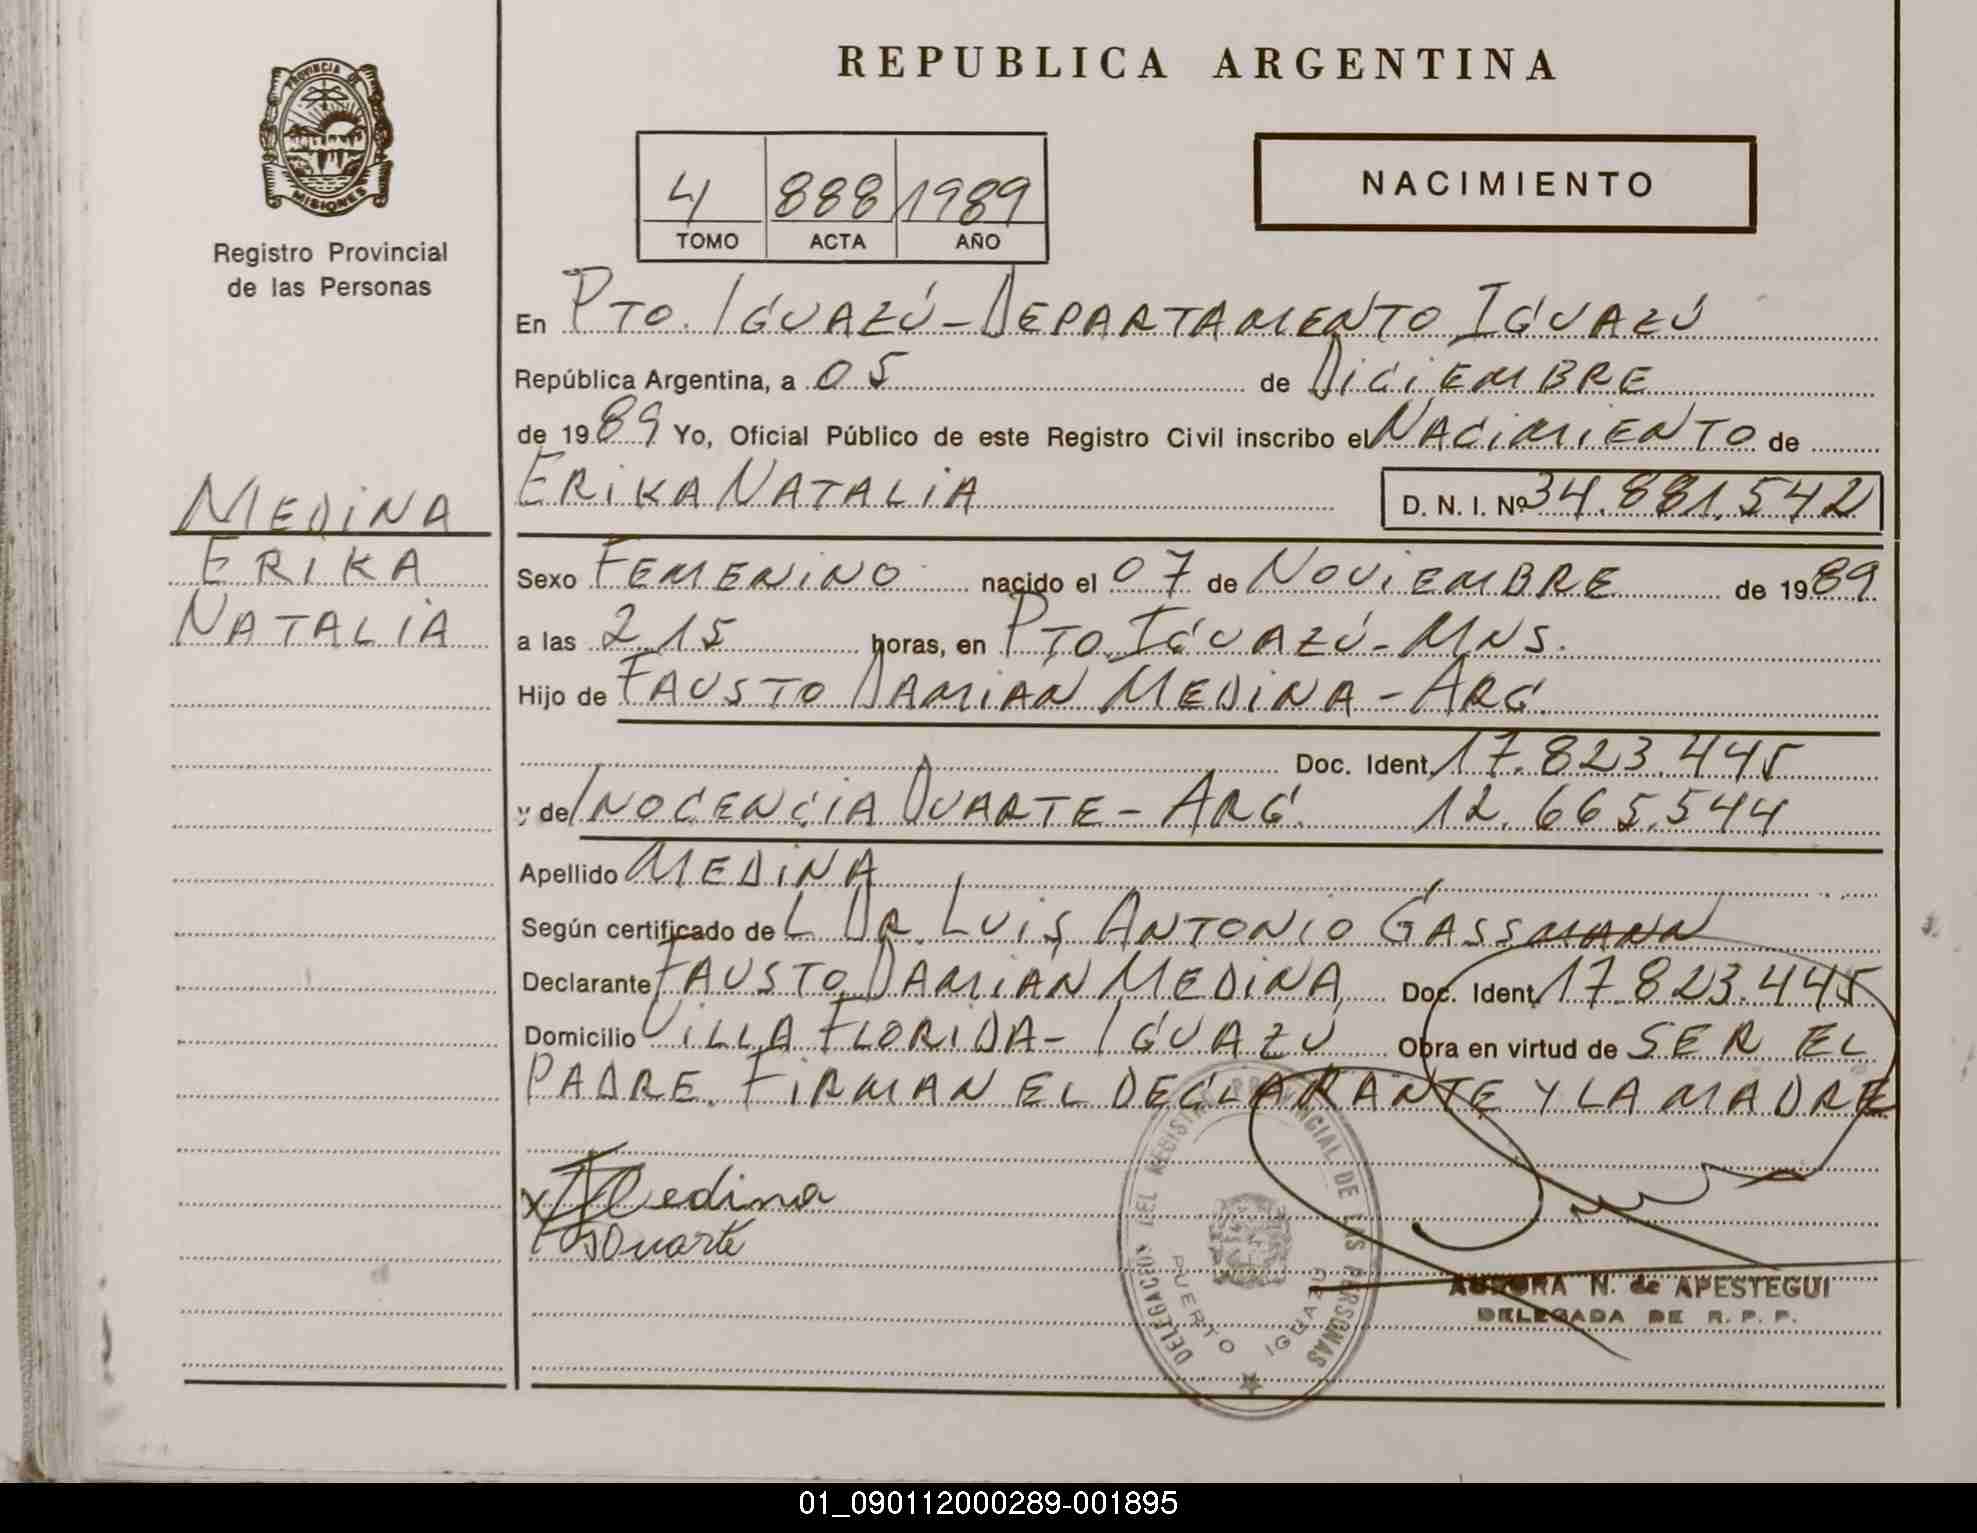 REPUBLICA ARGENTINA
PROVINCIA DE
MISIONES
Registro Provincial
de las Personas
4 888 1989
TOMO ACTA AÑO
NACIMIENTO
En PTO. IGUAZÚ - DEPARTAMENTO IGUAZÚ
República Argentina, a 05 de DICIEMBRE
de 1989 Yo, Oficial Público de este Registro Civil inscribo el NACIMIENTO de
ERIKA NATALIA D. N. I. Nº 34.881.542
MEDINA
ERIKA
NATALIA
Sexo FEMENINO nacido el 07 de NOVIEMBRE de 1989
a las 2 15 horas, en PTO. IGUAZÚ - MNS.
Hijo de FAUSTO DAMIAN MEDINA - ARG.
Doc. Ident. 17.823.445
y de INOCENCIA DUARTE - ARG. 12.665.544
Apellido MEDINA
Según certificado de L DR. LUIS ANTONIO GASSMANN
Declarante FAUSTO DAMIAN MEDINA Doc. Ident. 17.823.445
Domicilio VILLA FLORIDA - IGUAZÚ Obra en virtud de SER EL
PADRE. FIRMAN EL DECLARANTE Y LA MADRE
Medina
Duarte
DELEGACION DEL REGISTRO PROVINCIAL DE LAS PERSONAS
PUERTO IGUAZU
AURORA N. de APESTEGUI
DELEGADA DE R. P. P.
01_090112000289-001895